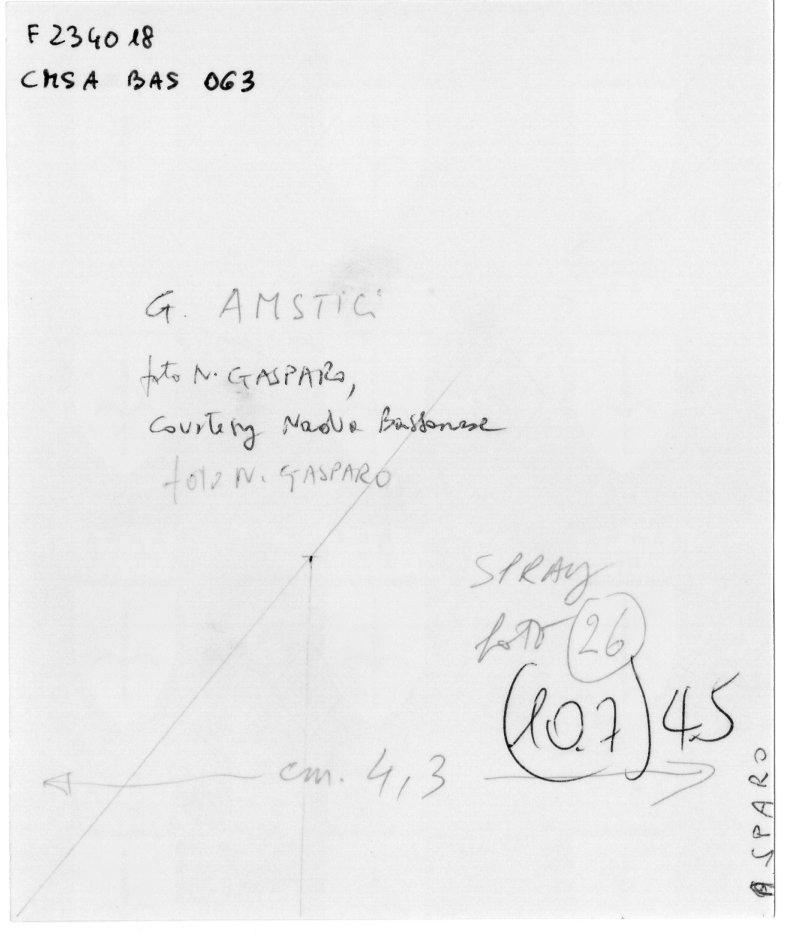 F 234018
CMSA BAS 063
G. AMSTICi
foto N. GASPARO,
Courtesy Nadia Bassanese
foto N. GASPARO
SPRAY
foto 26
(10.7) 45
cm. 4,3
ASPARO